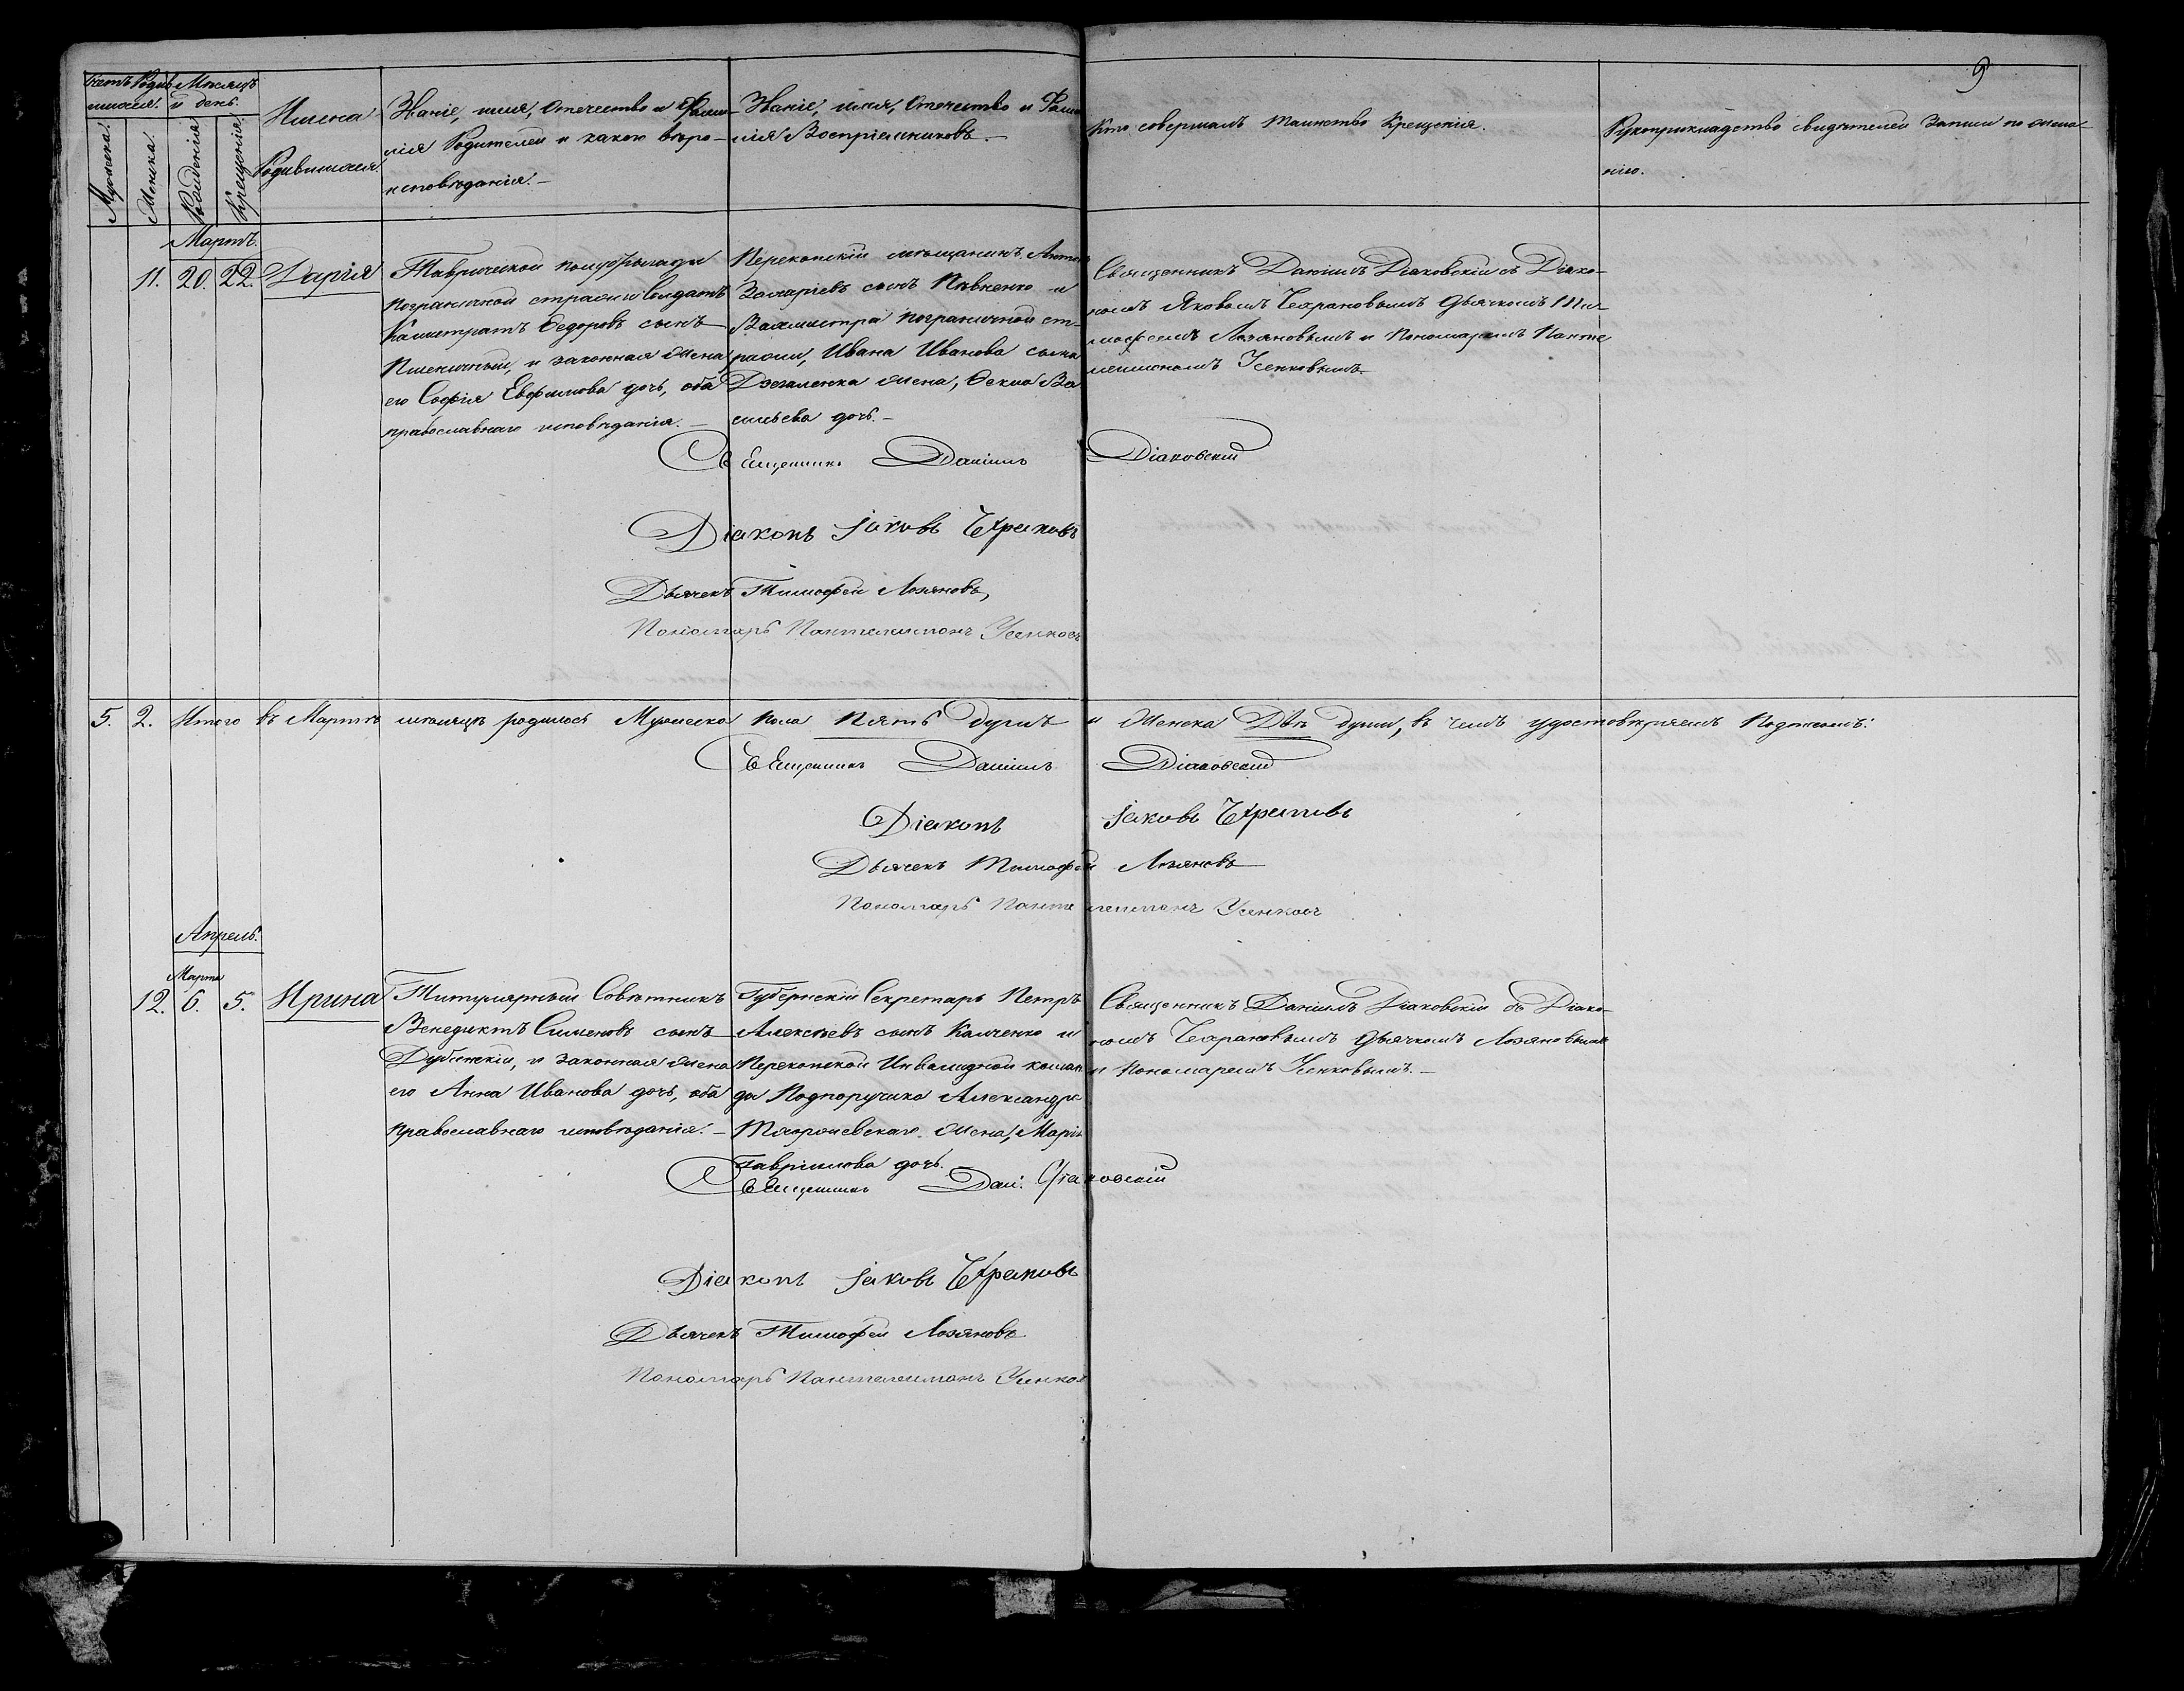 9
Счетъ Родив-
шихся.
Мѣсяцъ
и день.
Мужеска.
Женска.
Рожденія
Крещенія
Имена
Родившихся.
Званіе, имя, Отечество и Фами-
лія Родителей и какого вѣро-
исповѣданія.-
Званіе, имя, Отечество и Фами
лія Воспріемниковъ.-
Кто совершалъ таинство Крещенія.
Рукоприкладство свидѣтелей записи по жела-
нію.
Мартъ.
11. 20. 22. Дарія
Таврической полубригады
пограничной стражи Солдатъ
Калистратъ Ѳедоровъ сынъ
Пшеничный, и законная жена
его Софія Евфимова дочь, оба
православнаго исповѣданія.-
Перекопскій мѣщанинъ Антонъ
Захаріевъ сынъ Пивненко и
Вахмистра пограничной ст-
ражи, Ивана Иванова сына
жена, Ѳекла Ва
сильева дочь.-
Священникъ Даніилъ Діаковскій съ Діако-
номъ Яковомъ Чехрановымъ дьячкомъ Ти-
мофеемъ Лозяновымъ и Пономаремъ Панте
леимономъ Усенковымъ.
Священникъ Даніилъ Діаковскій
Діаконъ Іаковъ Чехрановъ
Дьячекъ Тимофей Лозяновъ,
Пономарь Пантелеимонъ Усенковъ
5. 2. Итого въ Мартѣ мѣсяцѣ родилось Мужеска пола Пять душъ и Женска Двѣ души, въ чемъ удостовѣряемъ Подписомъ:
Священникъ Даніилъ Діаковскій
Діаконъ Іаковъ Чехрановъ
Дьячекъ Тимофей Лозяновъ
Пономарь Пантелеимонъ Усенковъ
Апрель.
Марта
12. 6. 5. Ирина
Титулярный Совѣтникъ
Венедиктъ Сименовъ сынъ
Дубинскій, и законная жена
его Анна Иванова дочь, оба
православнаго исповѣданія.-
Губернскій Секретарь Петръ
Алексѣевъ сынъ Калченко и
Перекопской Инвалидной коман
ды Подпоручика Александра
жена, Марія
Гавріилова дочь.
Священникъ Даніилъ Діаковскій съ Діако-
номъ Чехрановымъ дьячкомъ Лозяновымъ
и Пономаремъ Усенковымъ.-
Священникъ Дан: Діаковскій
Діаконъ Іаковъ Чехрановъ
Дьячекъ Тимофей Лозяновъ
Пономарь Пантелеимонъ Усенков